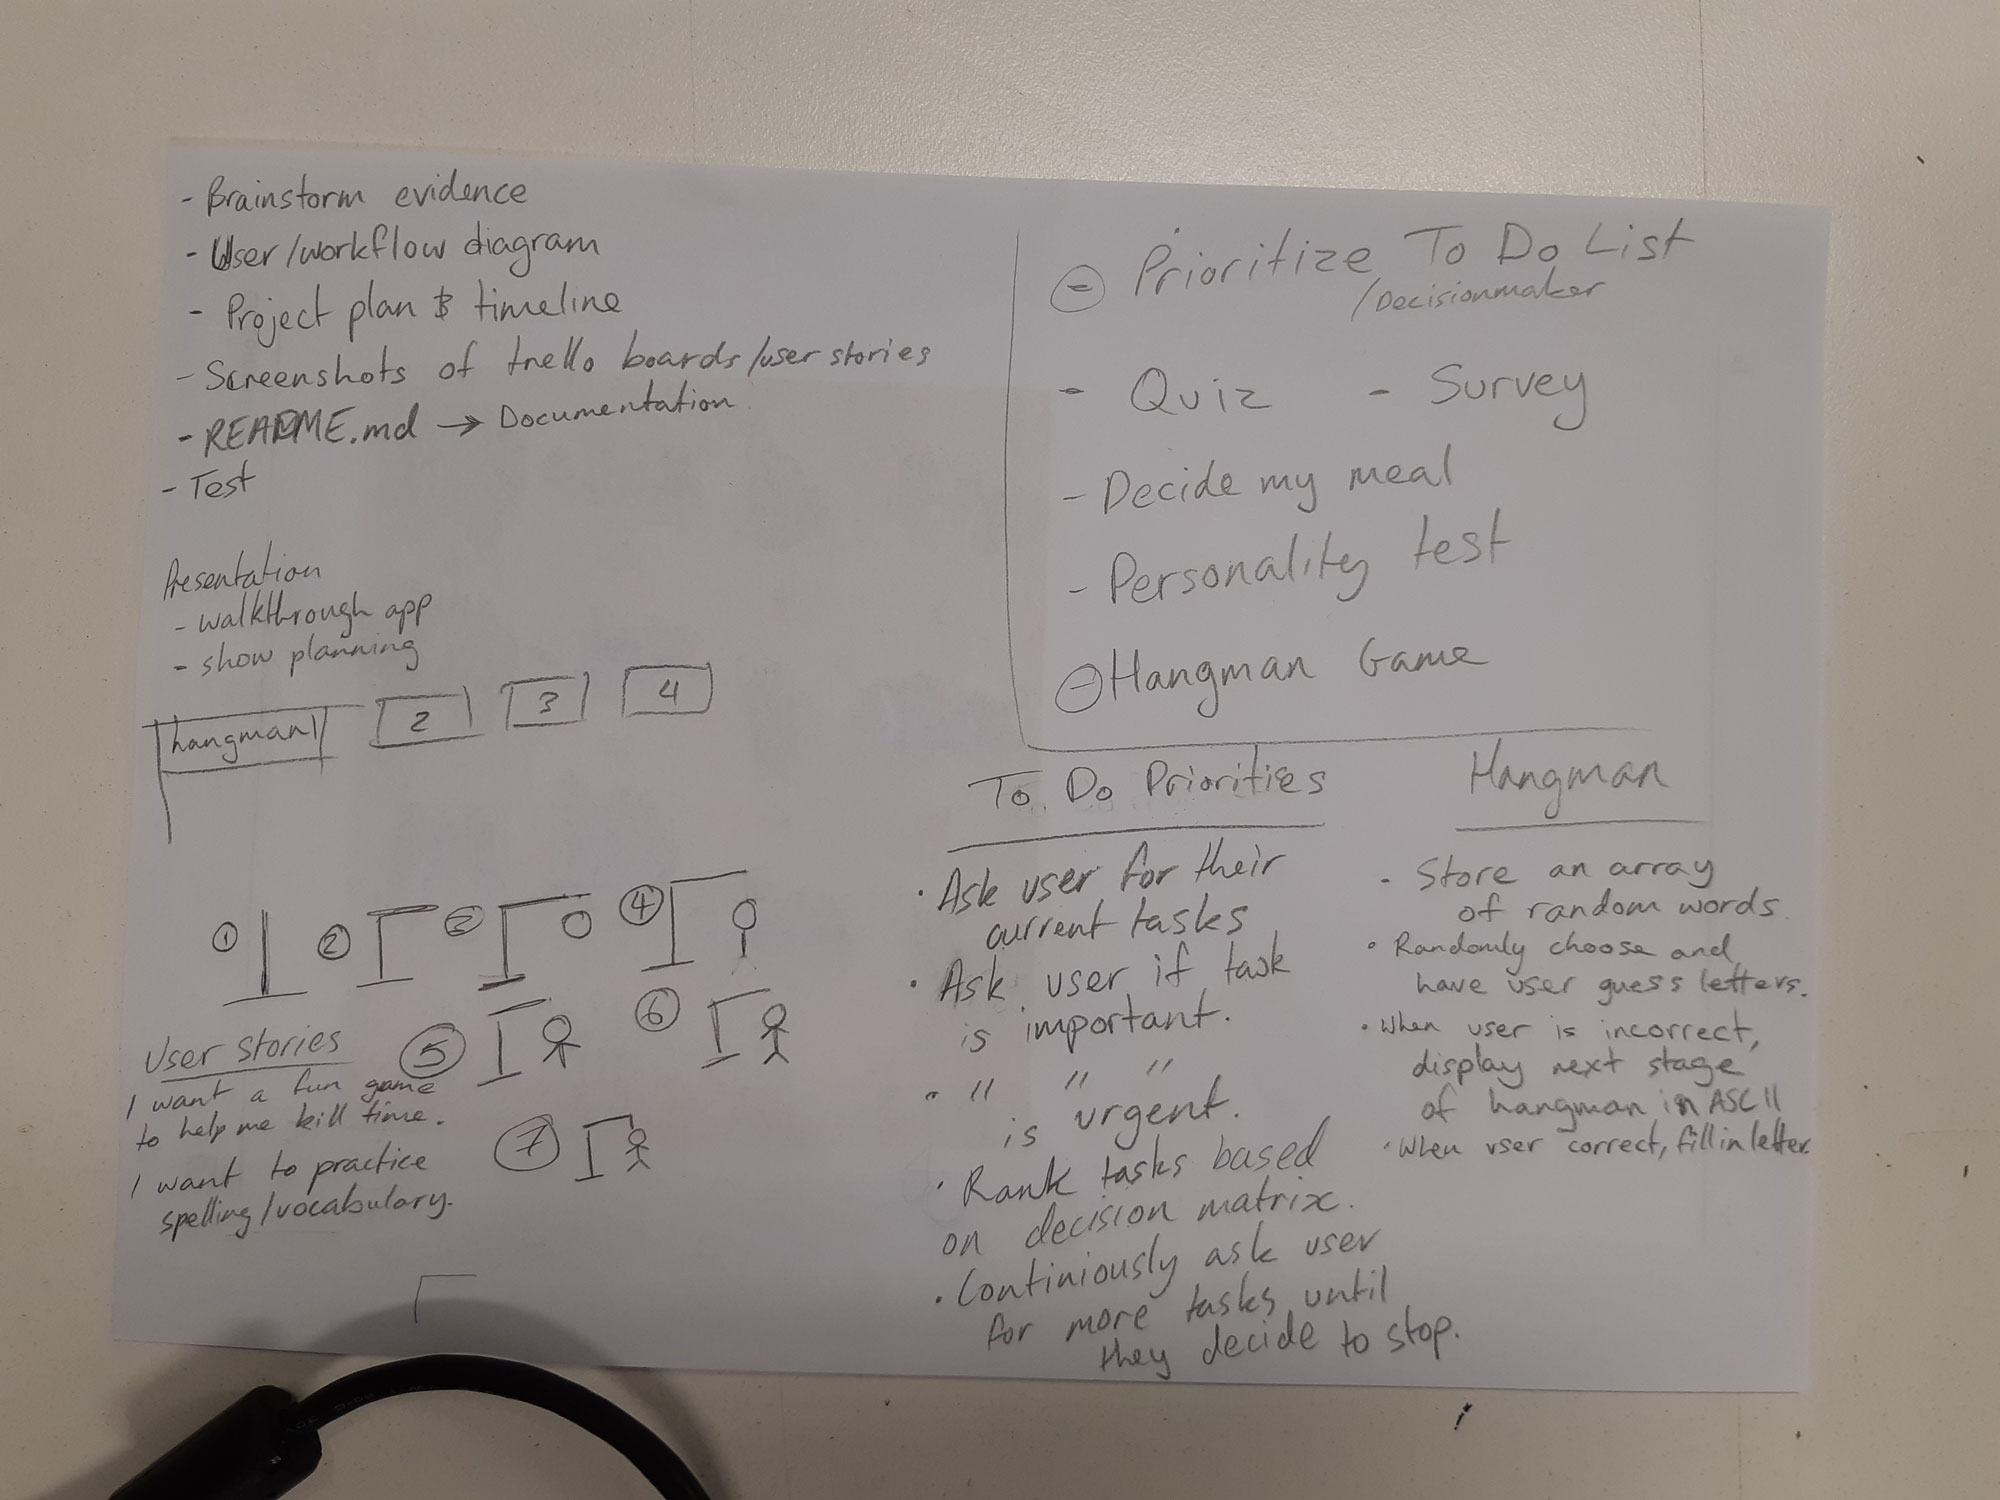 - Brainstorm evidence
- User/workflow diagram
- Project plan & timeline
- Screenshots of trello boards/user stories
- README.md → Documentation
- Test
Presentation
- walkthrough app
- show planning
hangman 1
2
3
4
① ② ③ ④
⑤ ⑥
⑦
User stories
I want a fun game
to help me kill time.
I want to practice
spelling/vocabulary.
- Prioritize To Do List
/Decisionmaker
- Quiz - Survey
- Decide my meal
- Personality test
- Hangman Game
To Do Priorities
· Ask user for their
current tasks
· Ask user if task
is important.
· " " "
is urgent.
· Rank tasks based
on decision matrix.
· Continiously ask user
for more tasks until
they decide to stop.
Hangman
- Store an array
of random words.
· Randomly choose and
have user guess letters.
· When user is incorrect,
display next stage
of hangman in ASCII
· When user correct, fill in letter